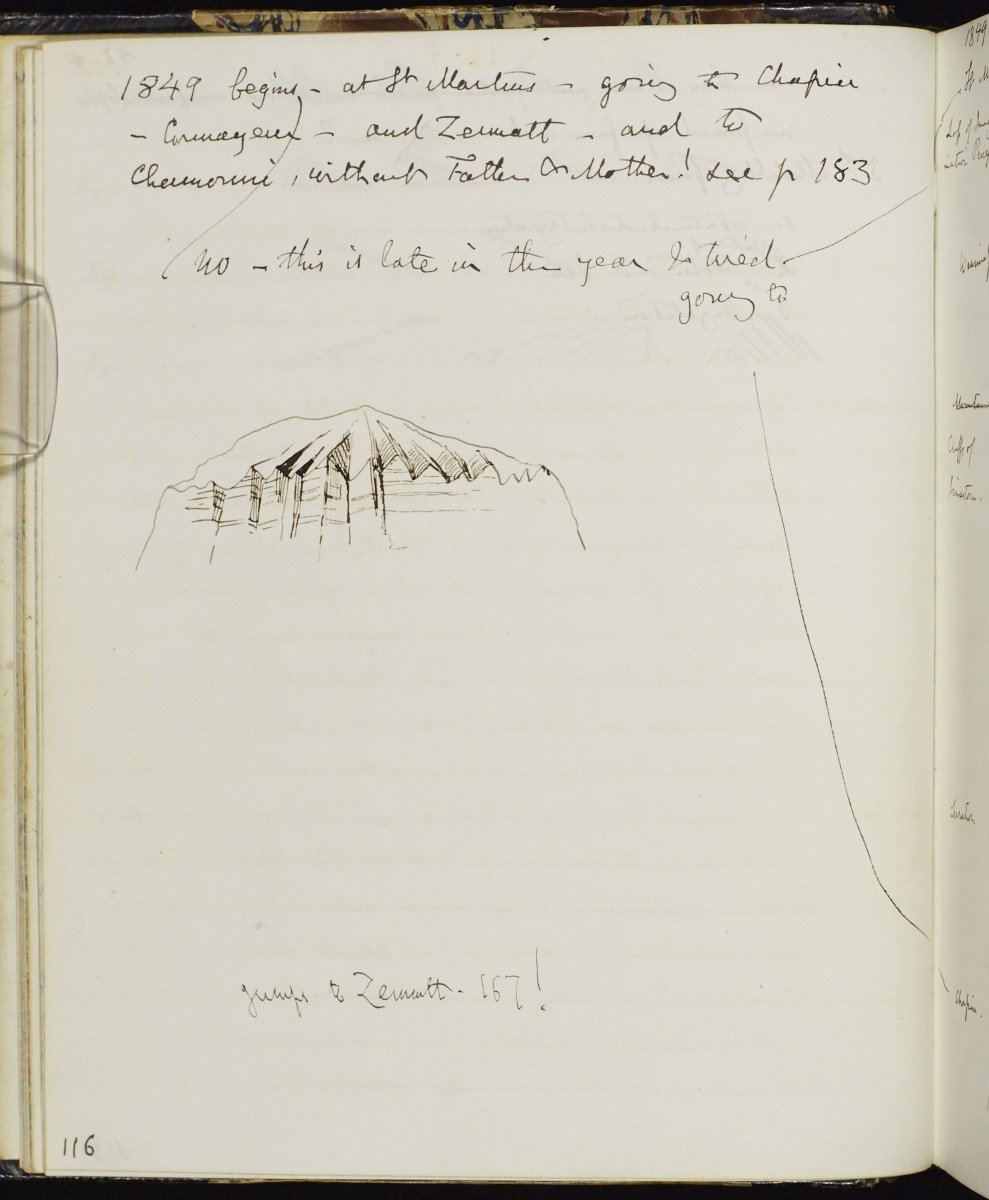 1849 begins - at St Martins - going to Chapiu
- Cormayeur - and Zermatt - and to
Chamouni, without Father or Mother! see p 183
No - this is late in the year & tired.
going to
jumps to Zermatt - 167!
116
1849
St M
Top of
Cliffs of
Chapiu.